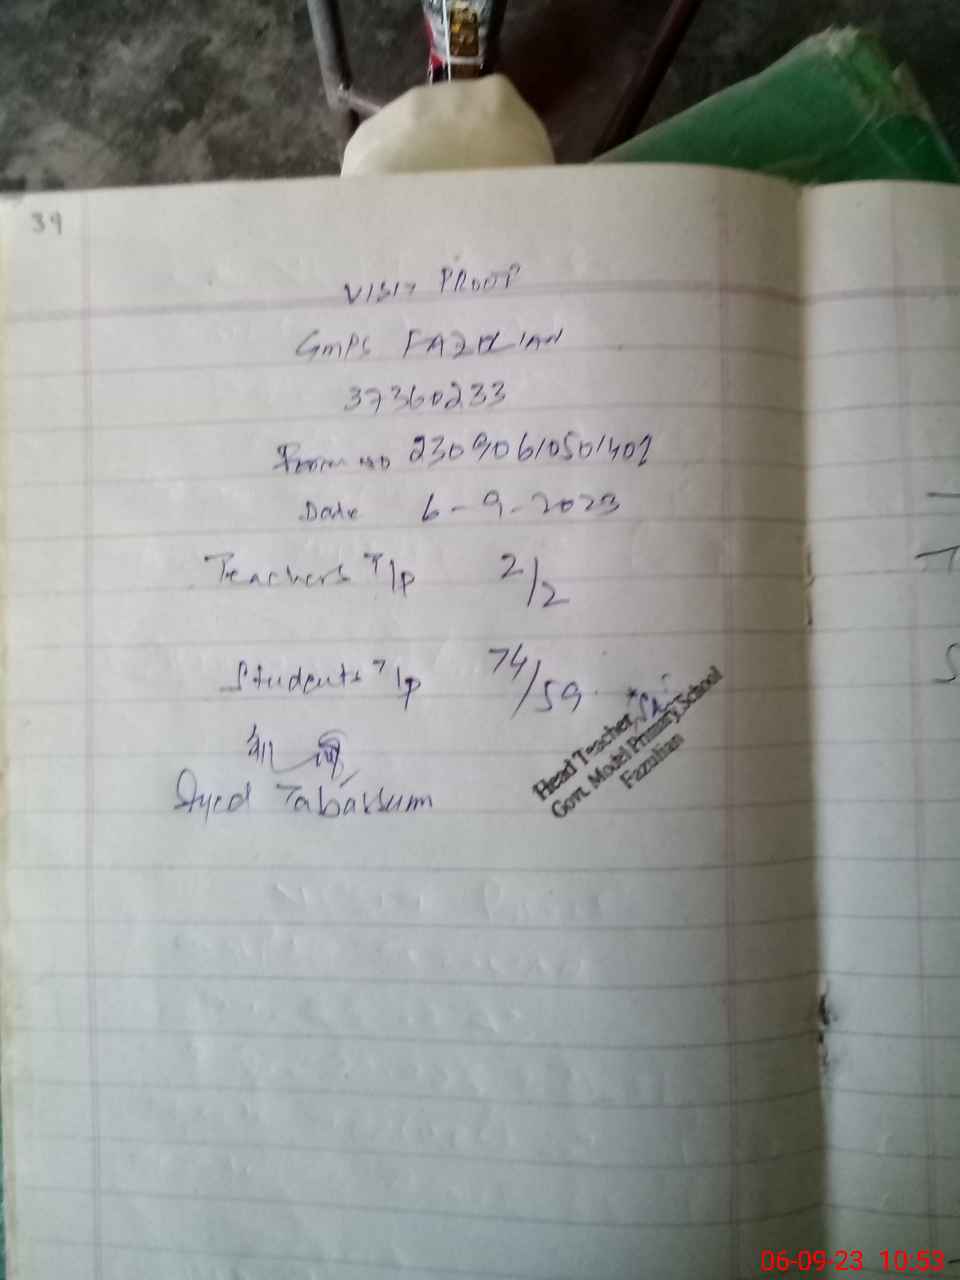 39
VISIT PROOF
GMPS FAZULIAN
37360233
Form no 23090610501402
Date 6-9-2023
Teachers T/P 2/2
Students T/P 74/59
Syed Tabassum
Head Teacher,
Govt. Model Primary School
Fazulian
06-09-23 10:53